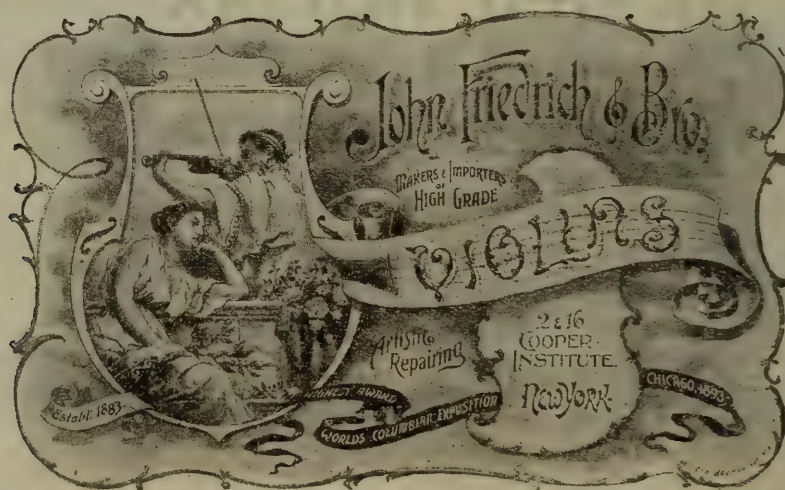 John Friedrich & Bro.
MAKERS & IMPORTERS
OF
HIGH GRADE
VIOLINS
Artistic
Repairing
2 & 16
COOPER
INSTITUTE.
NEW YORK.
Establ: 1883.
HIGHEST AWARD
WORLDS COLUMBIAN EXPOSITION
CHICAGO, 1893.